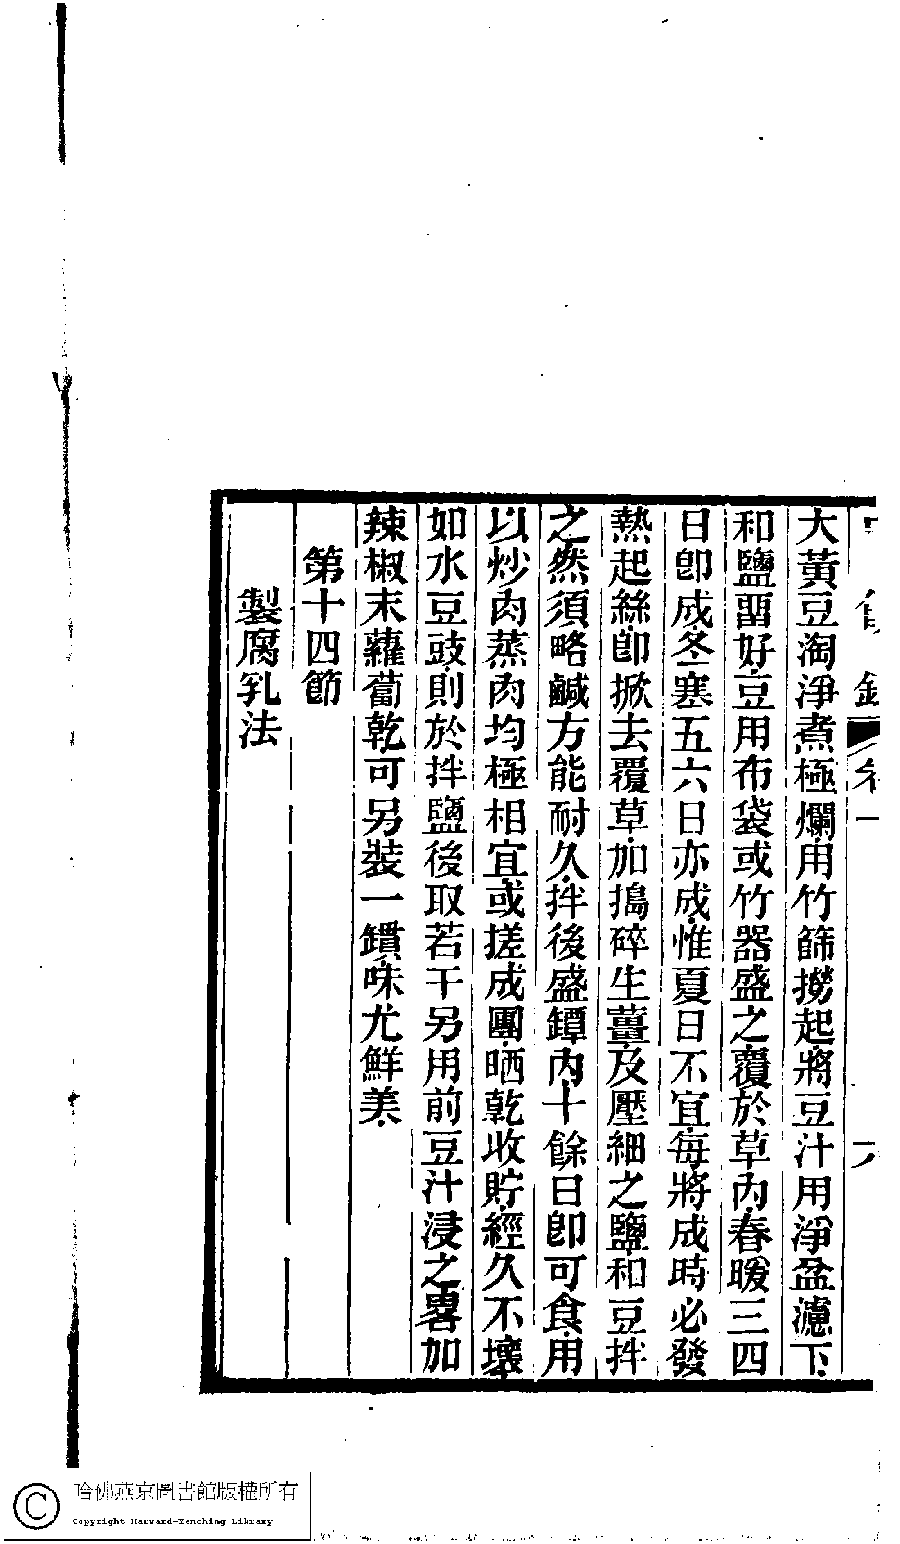 大黃豆淘淨煮極爛用竹篩撈起將豆汁用淨盆濾下
和鹽畱好豆用布袋或竹器盛之覆於草內春暖三四
日卽成冬寒五六日亦成惟夏日不宜每將成時必發
熱起絲卽掀去覆草加搗碎生薑及壓細之鹽和豆拌
之然須略鹹方能耐久拌後盛罈內十餘日卽可食用
以炒肉蒸肉均極相宜或搓成團晒乾收貯經久不壞
如水豆豉則於拌鹽後取若干另用前豆汁浸之畧加
辣椒末蘿蔔乾可另裝一鑵味尤鮮美
第十四節
製腐乳法
哈佛燕京圖書館版權所有
Copyright Harvard-Yenching Library